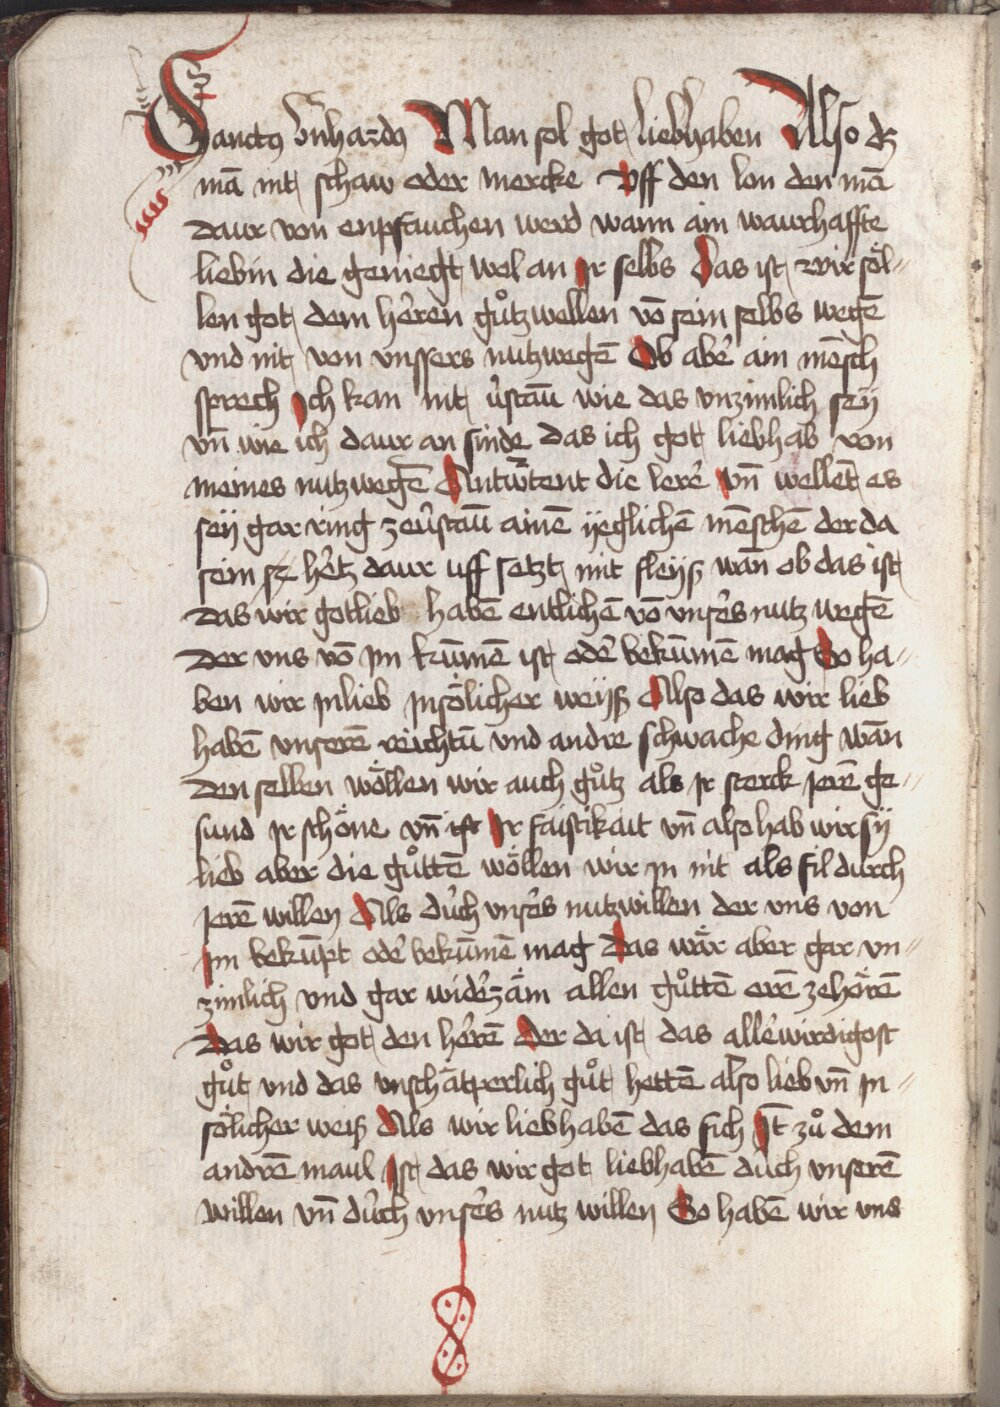 Sanctꝰ b̾nhardꝰ Man sol got liebhaben Also dz
mā nit schaw oder mercke Vff den lon den mā
daur von enpfauchen werd wann ain waurhaffte
liebin die geniegt wol an Ir selbs Das ist wir söl〃
len got dem hêren gůtz wellen vō sein selbs wegē
vnd nit von vnssers nutz wegē Ob abe̾ ain mēsch
sprech Ich kan nit v̾staū wie das vnzimlich seÿ
vn̄ wie ich daur an sinde das ich got liebhab von
meines nutz wegē Antw̾tent die lere̾ Vn̄ wellet es
seÿ gar ring zev̾staū ainē ÿeglichē mēschē der da
sein sz he̾tz daur uff setzt mit fleÿß wān ob das ist
das wir gotlieb habē entlichē vō vnse̾s nutz wegē
Der vns vō jm kūmē ist ode̾ bekūmē mag So ha〃
ben wir jnlieb jnsölicher weÿß Also das wir lieb
habē vnserē reichtū vnd andre schwache ding wān
Den selben wöllen wir auch gůtz als jr sterck jerē ge〃
sund jr schöne vn̄ ist Ir faistikait vn̄ also hab wir sÿ
lieb aber die gůttē wöllen wir jn nit als fil durch
jerē willen Als du̾ch vnse̾s nutz willen der vns von
Im bekūpt ode̾ bekūmē mag Das wär aber gar vn〃
zimlich vnd gar wide̾zäm allen gůttē orē zehörē
Das wir got den he̾rē Der da ist das alle̾wirdigost
gůt vnd das vnschätperlich gůt hettē also lieb vn̄ jn〃
sölicher weiß Als wir liebhabē das fich It̄ zů dem
andrē maul Ist das wir got liebhabē du̾ch vnserē
willen vn̄ du̾ch vnse̾s nutz willen So habē wir vns